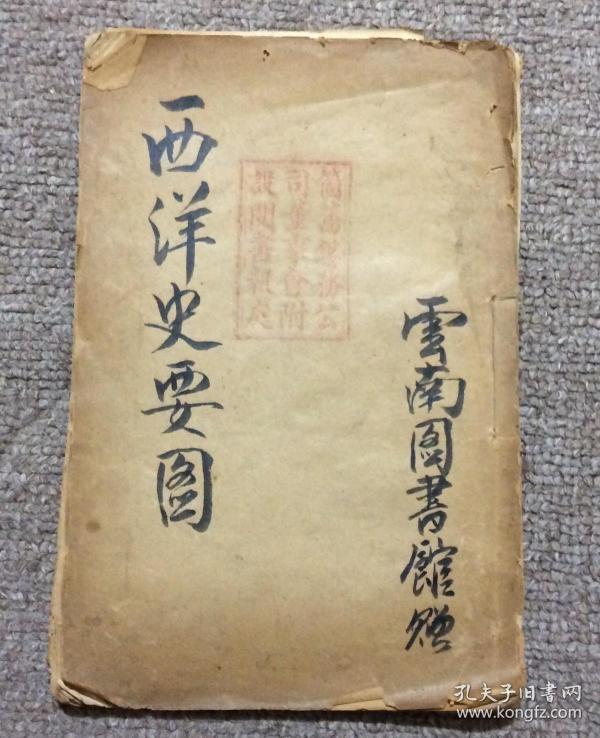 雲南圖書館贈
箇舊錫務公
司董事會附
設閱書報處
西洋史要圖
孔夫子旧书网
www.kongfz.com